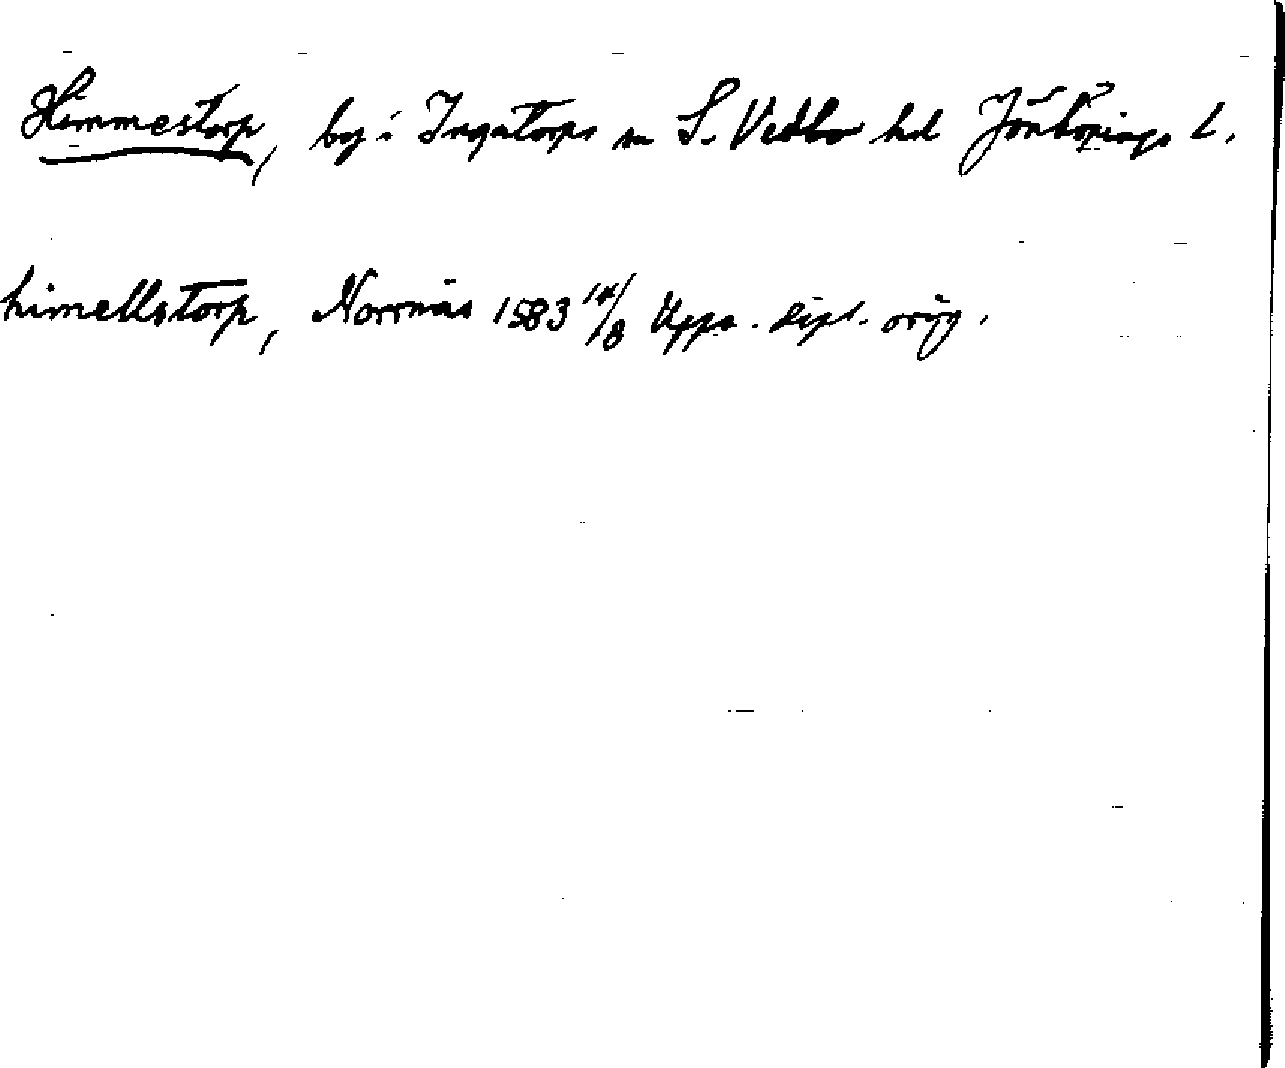 Himmestorp, by i Ingatorps sn S. Vedbo hd Jönköpings l.
himellstorp, Norrnäs 1583 14/8 Upps. dipl. orig.